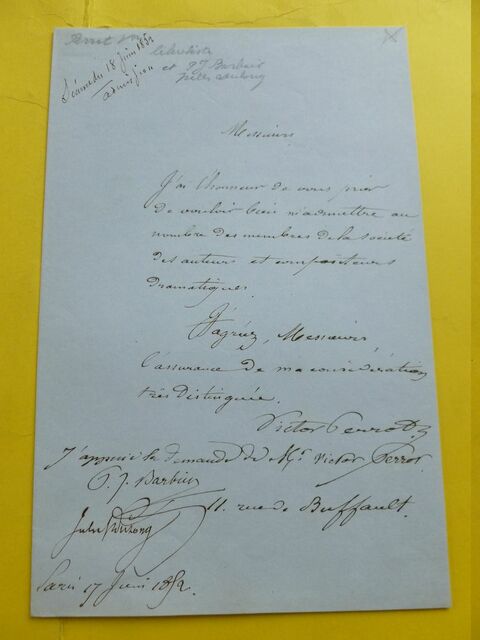 Perrot Vor
librettiste
et P J Barbier
Jules
18 juin 1852
admission
Messieurs
J'ai l'honneur de vous prier
de vouloir bien m'admettre au
nombre des membres de la société
des auteurs et compositeurs
dramatiques.
J'agréez, Messieurs,
l'assurance de ma considération
très distinguée.
Victor Perrot
J'appuie la demande de Mr Victor Perrot.
P. J. Barbier
11. rue de Buffault.
Jules
Paris 17 juin 1852.